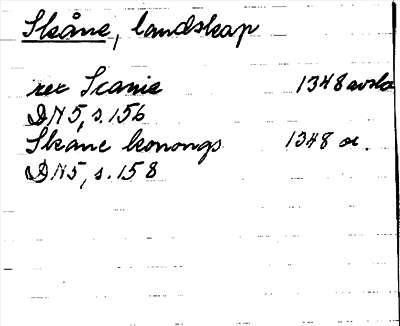 Skåne, landskap
rex Scanie 1348 avskr
DN 5, s. 156
Skåne konongs 1348 or.
DN 5, s. 158